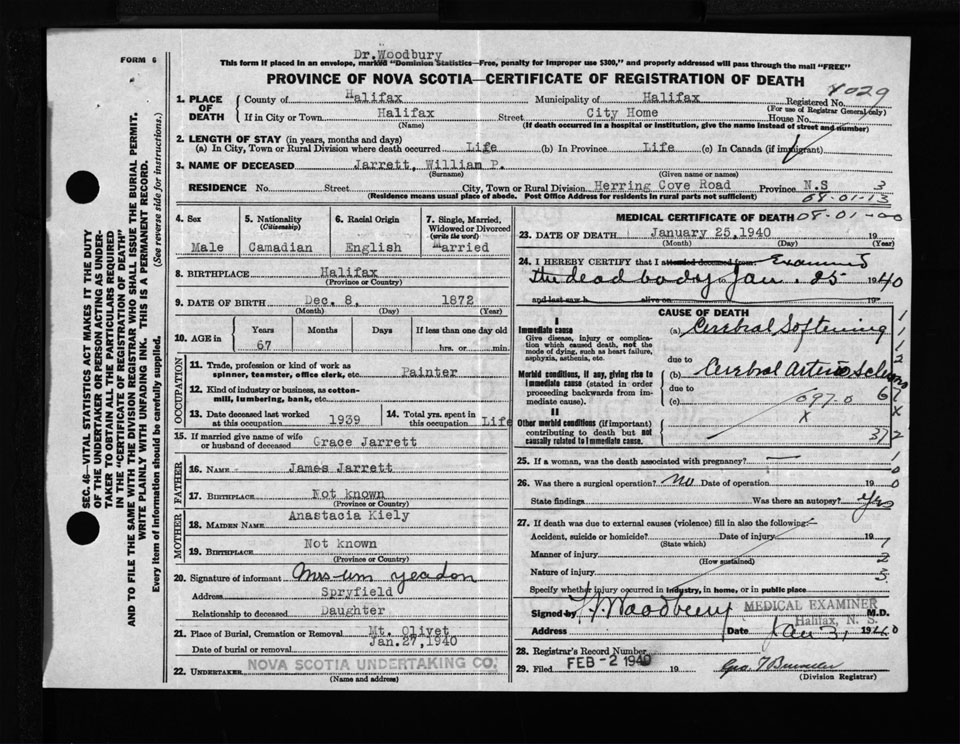 FORM 6
Dr. Woodbury
This form if placed in an envelope, marked "Dominion Statistics—Free, penalty for improper use $300," and properly addressed will pass through the mail "FREE"
PROVINCE OF NOVA SCOTIA—CERTIFICATE OF REGISTRATION OF DEATH
4029
1. PLACE OF DEATH
County of Halifax Municipality of Halifax Registered No.
(For use of Registrar General only)
If in City or Town Halifax Street City Home House No.
(Name) (If death occurred in a hospital or institution, give the name instead of street and number)
2. LENGTH OF STAY (in years, months and days)
(a) In City, Town or Rural Division where death occurred Life (b) In Province Life (c) In Canada (if immigrant)
3. NAME OF DECEASED Jarrett, William P.
(Surname) (Given name or names)
RESIDENCE No. Street City, Town or Rural Division Herring Cove Road Province N.S 3
(Residence means usual place of abode. Post Office Address for residents in rural parts not sufficient) 08-01-13
4. Sex Male
5. Nationality (Citizenship) Camadian
6. Racial Origin English
7. Single, Married, Widowed or Divorced (write the word) Married
8. BIRTHPLACE Halifax
(Province or Country)
9. DATE OF BIRTH Dec. 8, 1872
(Month) (Day) (Year)
10. AGE in Years Months Days If less than one day old
67 hrs. or min.
OCCUPATION
11. Trade, profession or kind of work as spinner, teamster, office clerk, etc. Painter
12. Kind of industry or business, as cotton-mill, lumbering, bank, etc.
13. Date deceased last worked at this occupation 1939
14. Total yrs. spent in this occupation Life
15. If married give name of wife or husband of deceased Grace Jarrett
FATHER
16. NAME James Jarrett
17. BIRTHPLACE Not known
(Province or Country)
MOTHER
18. MAIDEN NAME Anastacia Kiely
19. BIRTHPLACE Not known
(Province or Country)
20. Signature of informant Mrs Wm Yeadon
Address Spryfield
Relationship to deceased Daughter
21. Place of Burial, Cremation or Removal Mt. Olivet
Date of burial or removal Jan.27,1940
22. UNDERTAKER NOVA SCOTIA UNDERTAKING CO.
(Name and address)
MEDICAL CERTIFICATE OF DEATH 08-01-00
23. DATE OF DEATH January 25,1940 19
(Month) (Day) (Year)
24. I HEREBY CERTIFY that I attended deceased from Examined
the dead body to Jan. 25 1940
and last saw h alive on 19
CAUSE OF DEATH
I
Immediate cause
Give disease, injury or complication which caused death, not the mode of dying, such as heart failure, asphyxia, asthenia, etc.
(a) Cerebral Softening
due to
Morbid conditions, if any, giving rise to immediate cause (stated in order proceeding backwards from immediate cause).
(b) Cerebral Arterio Sclerosis
due to
(c) 097.0
X
II
Other morbid conditions (important) contributing to death but not causally related to immediate cause.
1
1
1
2
6
7
X
37 2
25. If a woman, was the death associated with pregnancy? —
26. Was there a surgical operation? No Date of operation 19
State findings Was there an autopsy? Yes
27. If death was due to external causes (violence) fill in also the following:
Accident, suicide or homicide? Date of injury 19
(State which)
Manner of injury 2
(How sustained)
Nature of injury 3
Specify whether injury occurred in industry, in home, or in public place
Signed by Woodbury MEDICAL EXAMINER M.D.
Halifax, N. S.
Address Date Jan 31, 1940
28. Registrar's Record Number
29. Filed FEB - 2 1940 19
(Division Registrar)
SEC. 46—VITAL STATISTICS ACT MAKES IT THE DUTY
OF THE UNDERTAKER OR PERSON ACTING AS UNDER-
TAKER TO OBTAIN ALL THE PARTICULARS REQUIRED
IN THE "CERTIFICATE OF REGISTRATION OF DEATH"
AND TO FILE THE SAME WITH THE DIVISION REGISTRAR WHO SHALL ISSUE THE BURIAL PERMIT.
WRITE PLAINLY WITH UNFADING INK. THIS IS A PERMANENT RECORD.
Every item of information should be carefully supplied. (See reverse side for instructions.)